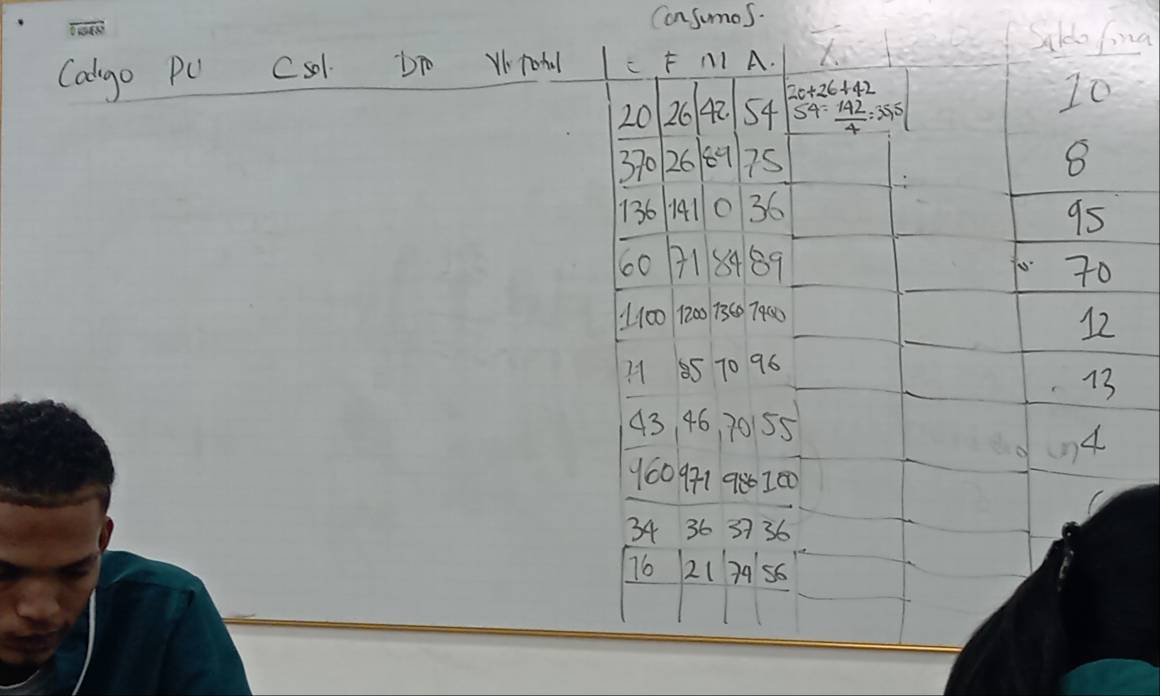 Consumos.
Codigo PU C sol. Dto Vlr total E F M A. X. Saldo fina
20 26 42 54 20+26+42 54= 142/4 = 35,5 10
370 26 89 75 8
136 141 0 36 95
60 71 84 89 70
1100 1200 1360 1400 12
71 85 70 96 13
43 46 70 55 4
960 971 986 100
34 36 37 36
16 21 79 56